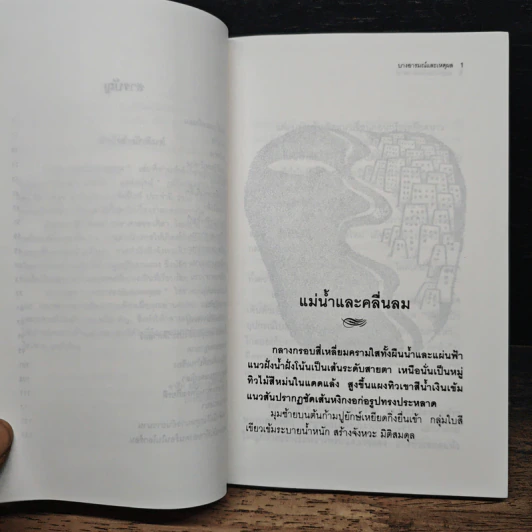 บางอารมณ์และเหตุผล 1
แม่น้ำและคลื่นลม
กลางกรอบสี่เหลี่ยมครามใสทั้งผืนน้ำและแผ่นฟ้า
แนวฝั่งน้ำฝั่งโน้นเป็นเส้นระดับสายตา เหนือนั่นเป็นหมู่
ทิวไม้สีหม่นในแดดแล้ง สูงขึ้นแผงทิวเขาสีน้ำเงินเข้ม
แนวสันปรากฏชัดเส้นหงิกงอก่อรูปทรงประหลาด
มุมซ้ายบนต้นก้ามปูยักษ์เหยียดกิ่งยื่นเข้า กลุ่มใบสี
เขียวเข้มระบายน้ำหนัก สร้างจังหวะ มิติสมดุล